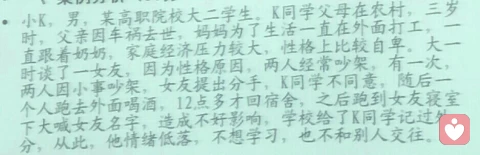 小K，男，某高职院校大二学生，K同学父母在农村，三岁
时，父亲因车祸去世，妈妈为了生活一直在外面打工，一
直跟着奶奶，家庭经济压力较大，性格上比较自卑。大一
时谈了一女友，因为性格原因，两人经常吵架，有一次，
两人因小事吵架，女友提出分手，K同学不同意，随后一
个人跑去外面喝酒，12点多才回宿舍，之后跑到女友寝室
下大喊女友名字，造成不好影响，学校给了K同学记过处
分，从此，他情绪低落，不想学习，也不和别人交往。